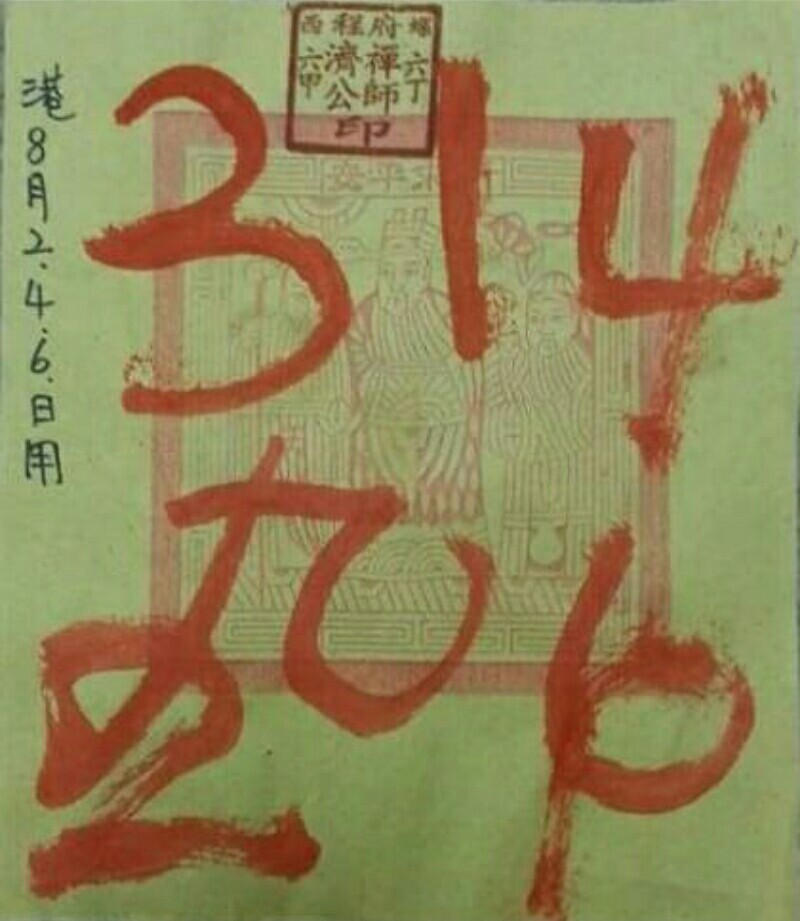 西程府螺
六甲
濟公
禪師
六丁
印
港8月2.4.6.日用
平安
314